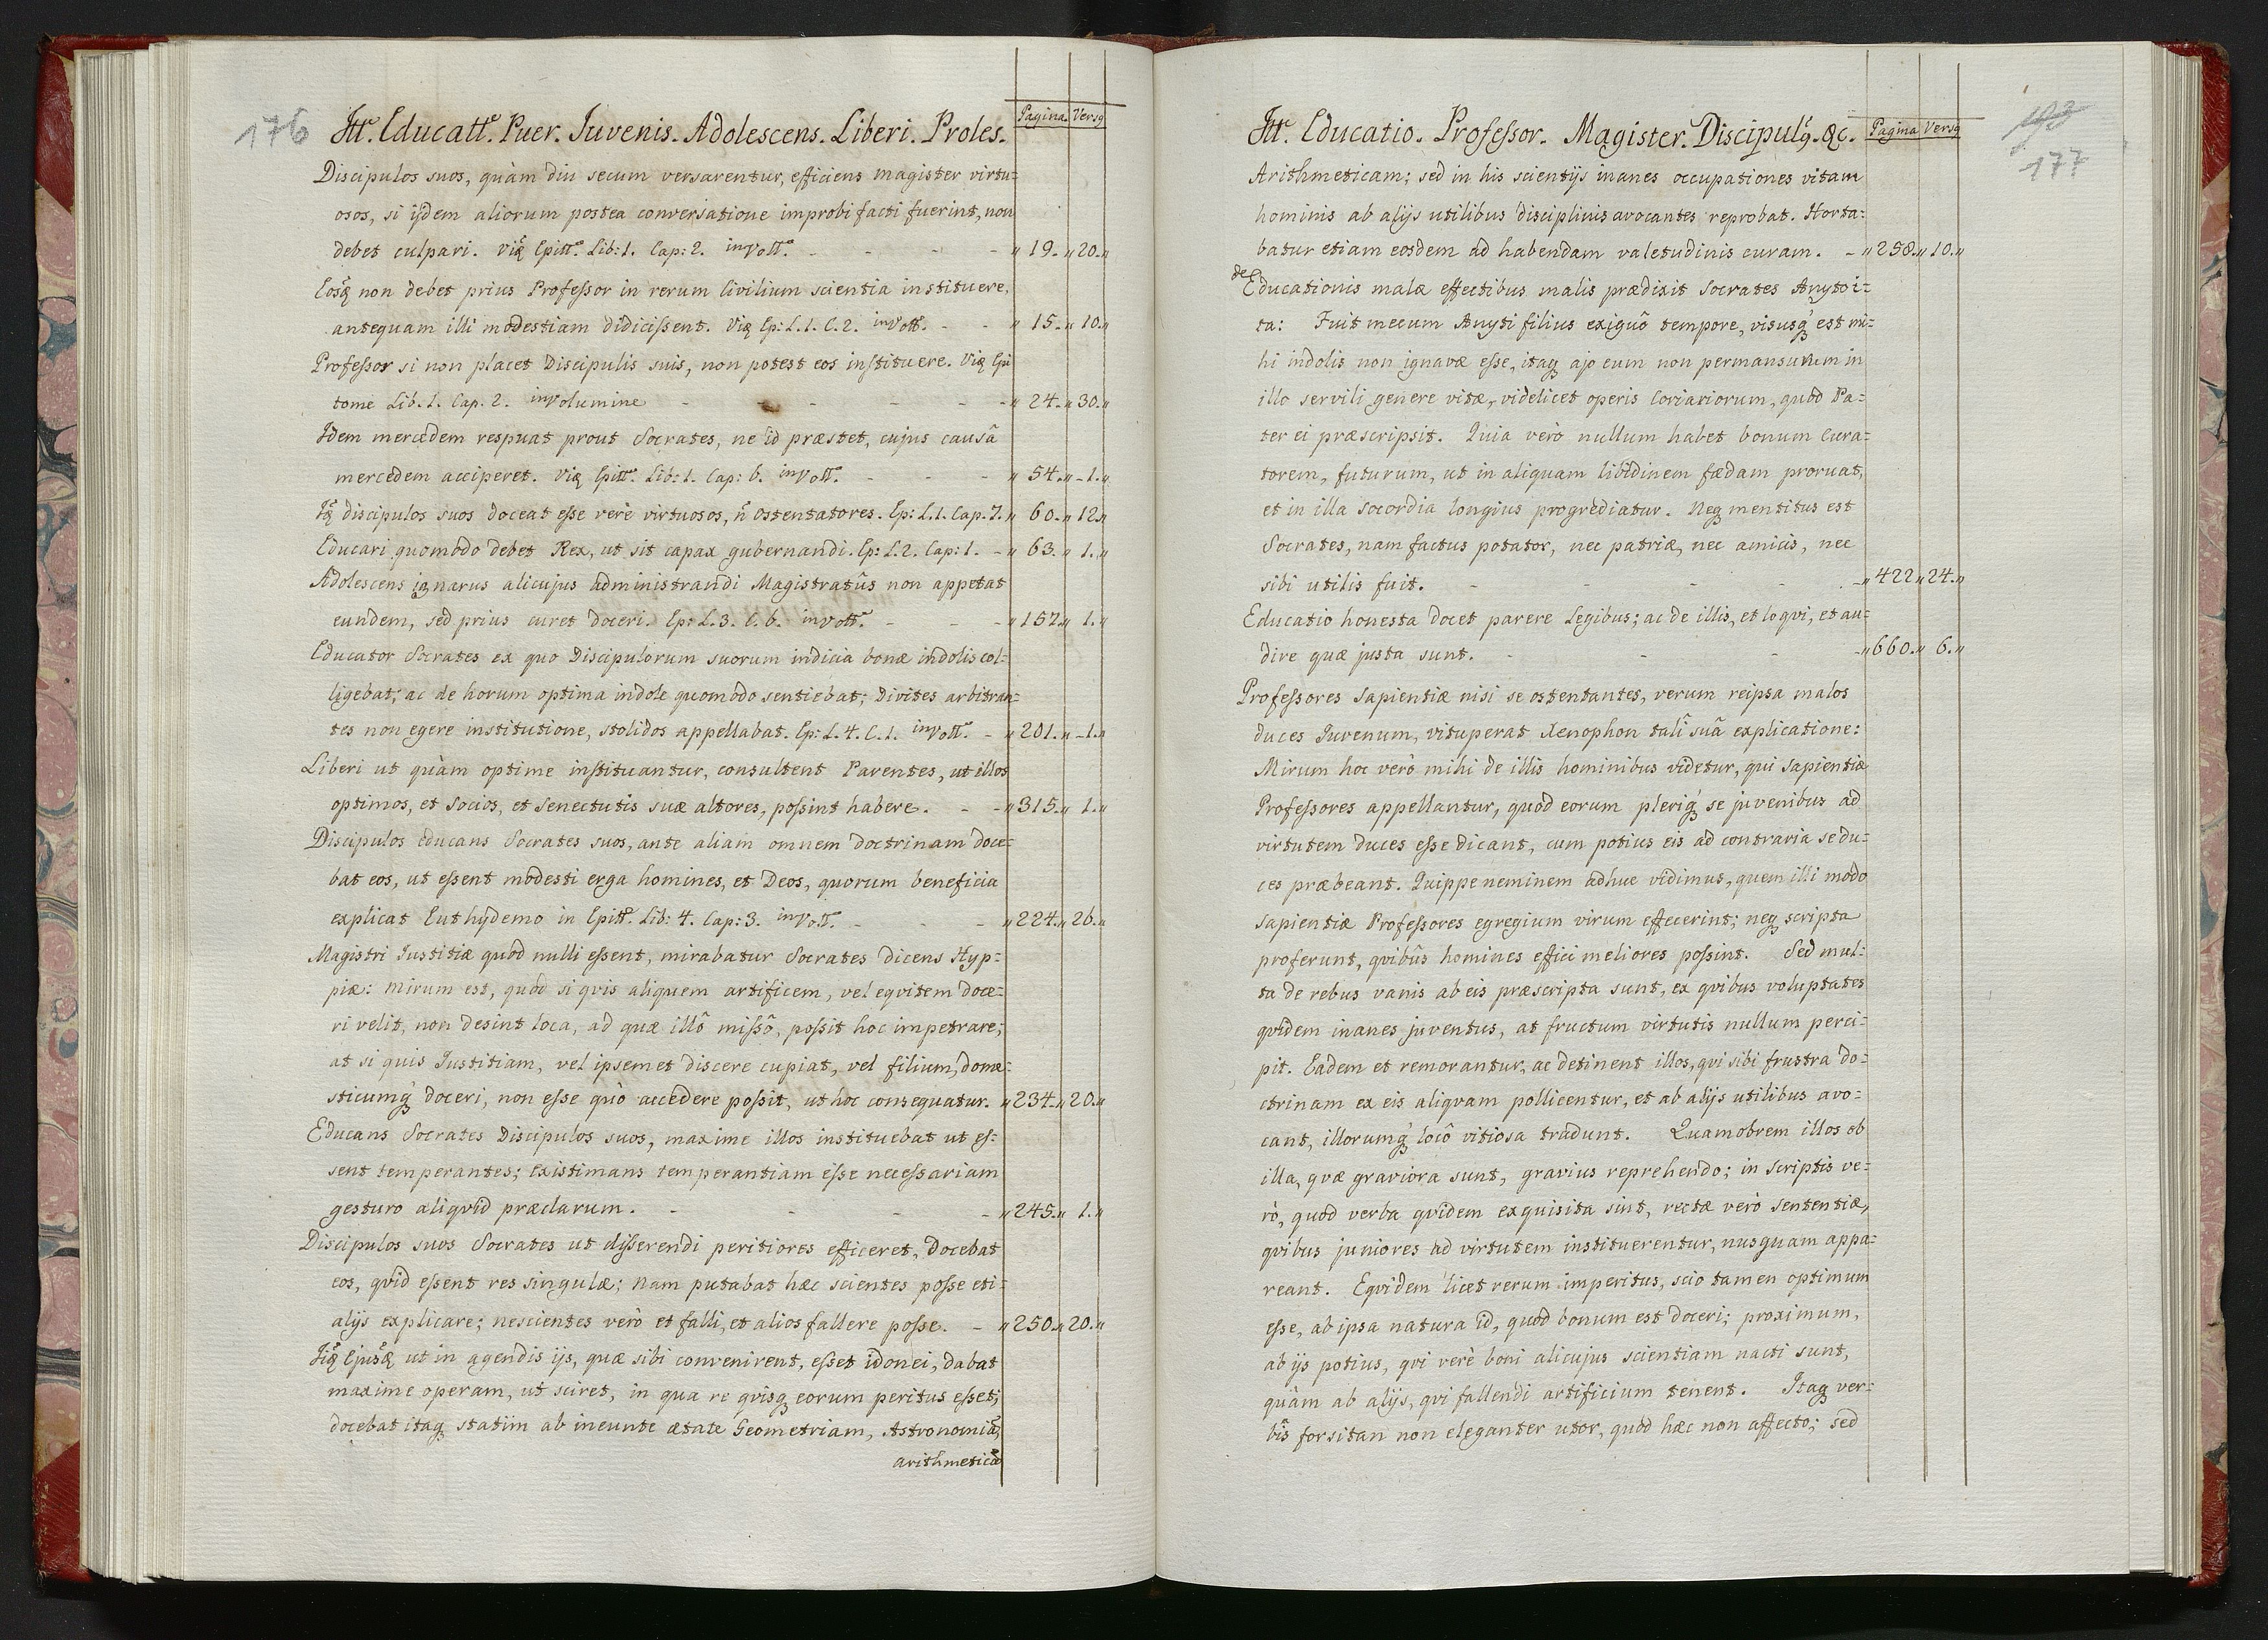 176 Itt. Educatt. Puer. Iuvenis. Adolescens. Liberi. Proles. Pagina. Versq
Discipulos suos, quàm diu secum versarentur, efficiens magister virtu=
osos, si ijdem aliorum postea conversatione improbi facti fuerint, non
debet culpari. Viq Epitt. Lib: 1. Cap: 2. in Vott. - - - - " 19. " 20. "
Eosq non debet prius Professor in rerum Civilium scientia instituere,
antequam illi modestiam didicissent. Viq Ep: L. 1. C. 2. in Vott. - - " 15. " 10. "
Professor si non placet Discipulis suis, non potest eos instituere. Viq Epi
tome Lib. 1. Cap. 2. in Volumine - - - - - " 24. " 30. "
Idem mercedem respuat prout Socrates, ne id præstet, cujus causâ
mercedem acciperet. Viq Epitt. Lib: 1. Cap: 6. in Vott. - - - " 54. " - 1. "
Iq discipulos suos doceat esse verè virtuosos, n ostentatores. Ep: L. 1. Cap. 7. " 60. " 12. "
Educari quomodo debet Rex, ut sit capax gubernandi. Ep: L. 2. Cap: 1. - " 63. " 1. "
Adolescens ignarus alicujus administrandi Magistratûs non appetat
eundem, sed prius curet doceri. Ep: L. 3. C. 6. in Vott. - - - " 157. " 1. "
Educator Socrates ex quo Discipulorum suorum indicia bonæ indolis col=
ligebat; ac de horum optima indole quomodo sentiebat; Divites arbitran=
tes non egere institutione, stolidos appellabat. Ep: L. 4. C. 1. in Vott. - " 201. " - 1. "
Liberi ut quàm optime instituantur, consultent Parentes, ut illos
optimos, et socios, et senectutis suæ altores, possint habere. - - " 315. " 1. "
Discipulos educans Socrates suos, ante aliam omnem doctrinam doce=
bat eos, ut essent modesti erga homines, et Deos, quorum beneficia
explicat Euthydemo in Epitt. Lib: 4. Cap: 3. in Vott. - - - " 224. " 26. "
Magistri Iustitiæ quod nulli essent, mirabatur Socrates dicens Hyp=
piæ: mirum est, quod si qvis aliquem artificem, vel eqvitem doce=
ri velit, non desint loca, ad quæ illô missô, possit hoc impetrare;
at si quis Iustitiam, vel ipsemet discere cupiat, vel filium, dome=
sticumq doceri, non esse quò accedere possit, ut hoc consequatur. " 234. " 20. "
Educans Socrates Discipulos suos, maxime illos instituebat ut es=
sent temperantes; existimans temperantiam esse necessariam
gesturo aliqvid præclarum. - - - - " 245. " 1. "
Discipulos suos Socrates ut disserendi peritiores efficeret, docebat
eos, qvid essent res singulæ; nam putabat hæc scientes posse eti=
alijs explicare; nescientes verò et falli, et alios fallere posse. - " 250. " 20. "
Iiq Ejusq ut in agendis ijs, quæ sibi convenirent, esset idonei, dabat
maxime operam, ut sciret, in qua re qvisq eorum peritus esset;
docebat itaq statim ab ineunte ætate Geometriam, Astronomiã,
arithmeticã
Itt. Educatio. Professor. Magister. Discipulq. &c. Pagina Versq 193
177
Arithmeticam; sed in his scientijs inanes occupationes vitam
hominis ab alijs utilibus disciplinis avocantes reprobat. Horta=
batur etiam eosdem ad habendam valetudinis curam. - " 258. " 10. "
de Educationis malæ effectibus malis prædixit Socrates Anyto i=
ta: Fuit mecum Anyti filius exiguô tempore, visusq est mi=
hi indolis non ignavæ esse, itaq ajo eum non permansurum in
illo servili genere vitæ, videlicet operis Coriariorum, quod Pa=
ter ei præscripsit. Quia verò nullum habet bonum Cura=
torem, futurum, ut in aliquam libidinem fædam proruat,
et in illa socordia longius progrediatur. Neq mentitus est
Socrates, nam factus potator, nec patriæ, nec amicis, nec
sibi utilis fuit. - - - - - " 422 " 24. "
Educatio honesta docet parere Legibus; ac de illis, et loqvi, et au=
dire quæ justa sunt. - - - - " 660. " 6. "
Professores sapientiæ nisi se ostentantes, verum reipsa malos
duces Iuvenum, vituperat Xenophon talî suâ explicatione:
Mirum hoc verò mihi de illis hominibus videtur, qui sapientiæ
Professores appellantur, quod eorum pleriq se juvenibus ad
virtutem duces esse dicant, cum potius eis ad contraria se du=
ces præbeant. Quippe neminem adhuc vidimus, quem illi modo
sapientiæ Professores egregium virum effecerint; neq scripta
proferunt, qvibus homines effici meliores possint. Sed mul=
ta de rebus vanis ab eis præscripta sunt, ex qvibus voluptates
qvidem inanes juventus, at fructum virtutis nullum perci=
pit. Eadem et remorantur, ac detinent illos, qvi sibi frustra do=
ctrinam ex eis aliqvam pollicentur, et ab alijs utilibus avo=
cant, illorumq locô vitiosa tradunt. Quamobrem illos ob
illa, qvæ graviora sunt, gravius reprehendo; in scriptis ve=
rò, quod verba qvidem exquisita sint, rectæ verò sententiæ,
qvibus juniores ad virtutem instituerentur, nusquam appa=
reant. Eqvidem licet rerum imperitus, scio tamen optimum
esse, ab ipsa natura id, quod bonum est doceri; proximum,
ab ijs potius, qvi verè boni alicujus scientiam nacti sunt,
quàm ab alijs, qvi fallendi artificium tenent. Itaq ver=
bis forsitan non eleganter utor, quòd hæc non affecto; sed